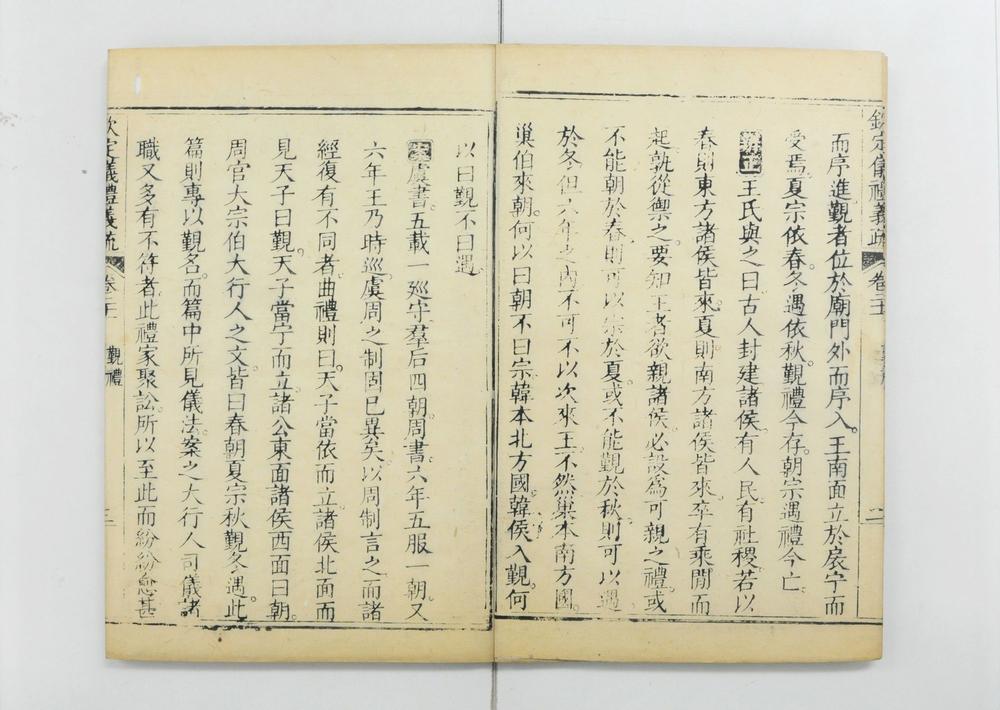 欽定儀禮義疏 卷二十
而序進覲者位於廟門外而序入。王南面立於扆宁而
受焉夏宗依春冬遇依秋覲禮今存朝宗遇禮今亡
辨正王氏與之曰古人封建諸侯有人民有社稷若以
春則東方諸侯皆來夏則南方諸侯皆來卒有乘間而
起孰從禦之要知王者欲親諸侯必設為可親之禮或
不能朝於春則可以宗於夏或不能覲於秋則可以遇
於冬但六年之內不可不以次來王不然巢本南方國
巢伯來朝何以曰朝不曰宗韓本北方國韓侯入覲何
以曰覲不曰遇
案虞書五載一巡守羣后四朝周書六年五服一朝又
六年王乃時巡虞周之制固已異矣以周制言之而諸
經復有不同者曲禮則曰天子當依而立諸侯北面而
見天子曰覲天子當宁而立諸公東面諸侯西面曰朝
周官大宗伯大行人之文皆曰春朝夏宗秋覲冬遇此
篇則專以覲名而篇中所見儀法案之大行人司儀諸
職又多有不符者此禮家聚訟所以至此而紛紛愈甚
欽定儀禮義疏 卷二十 覲禮 三